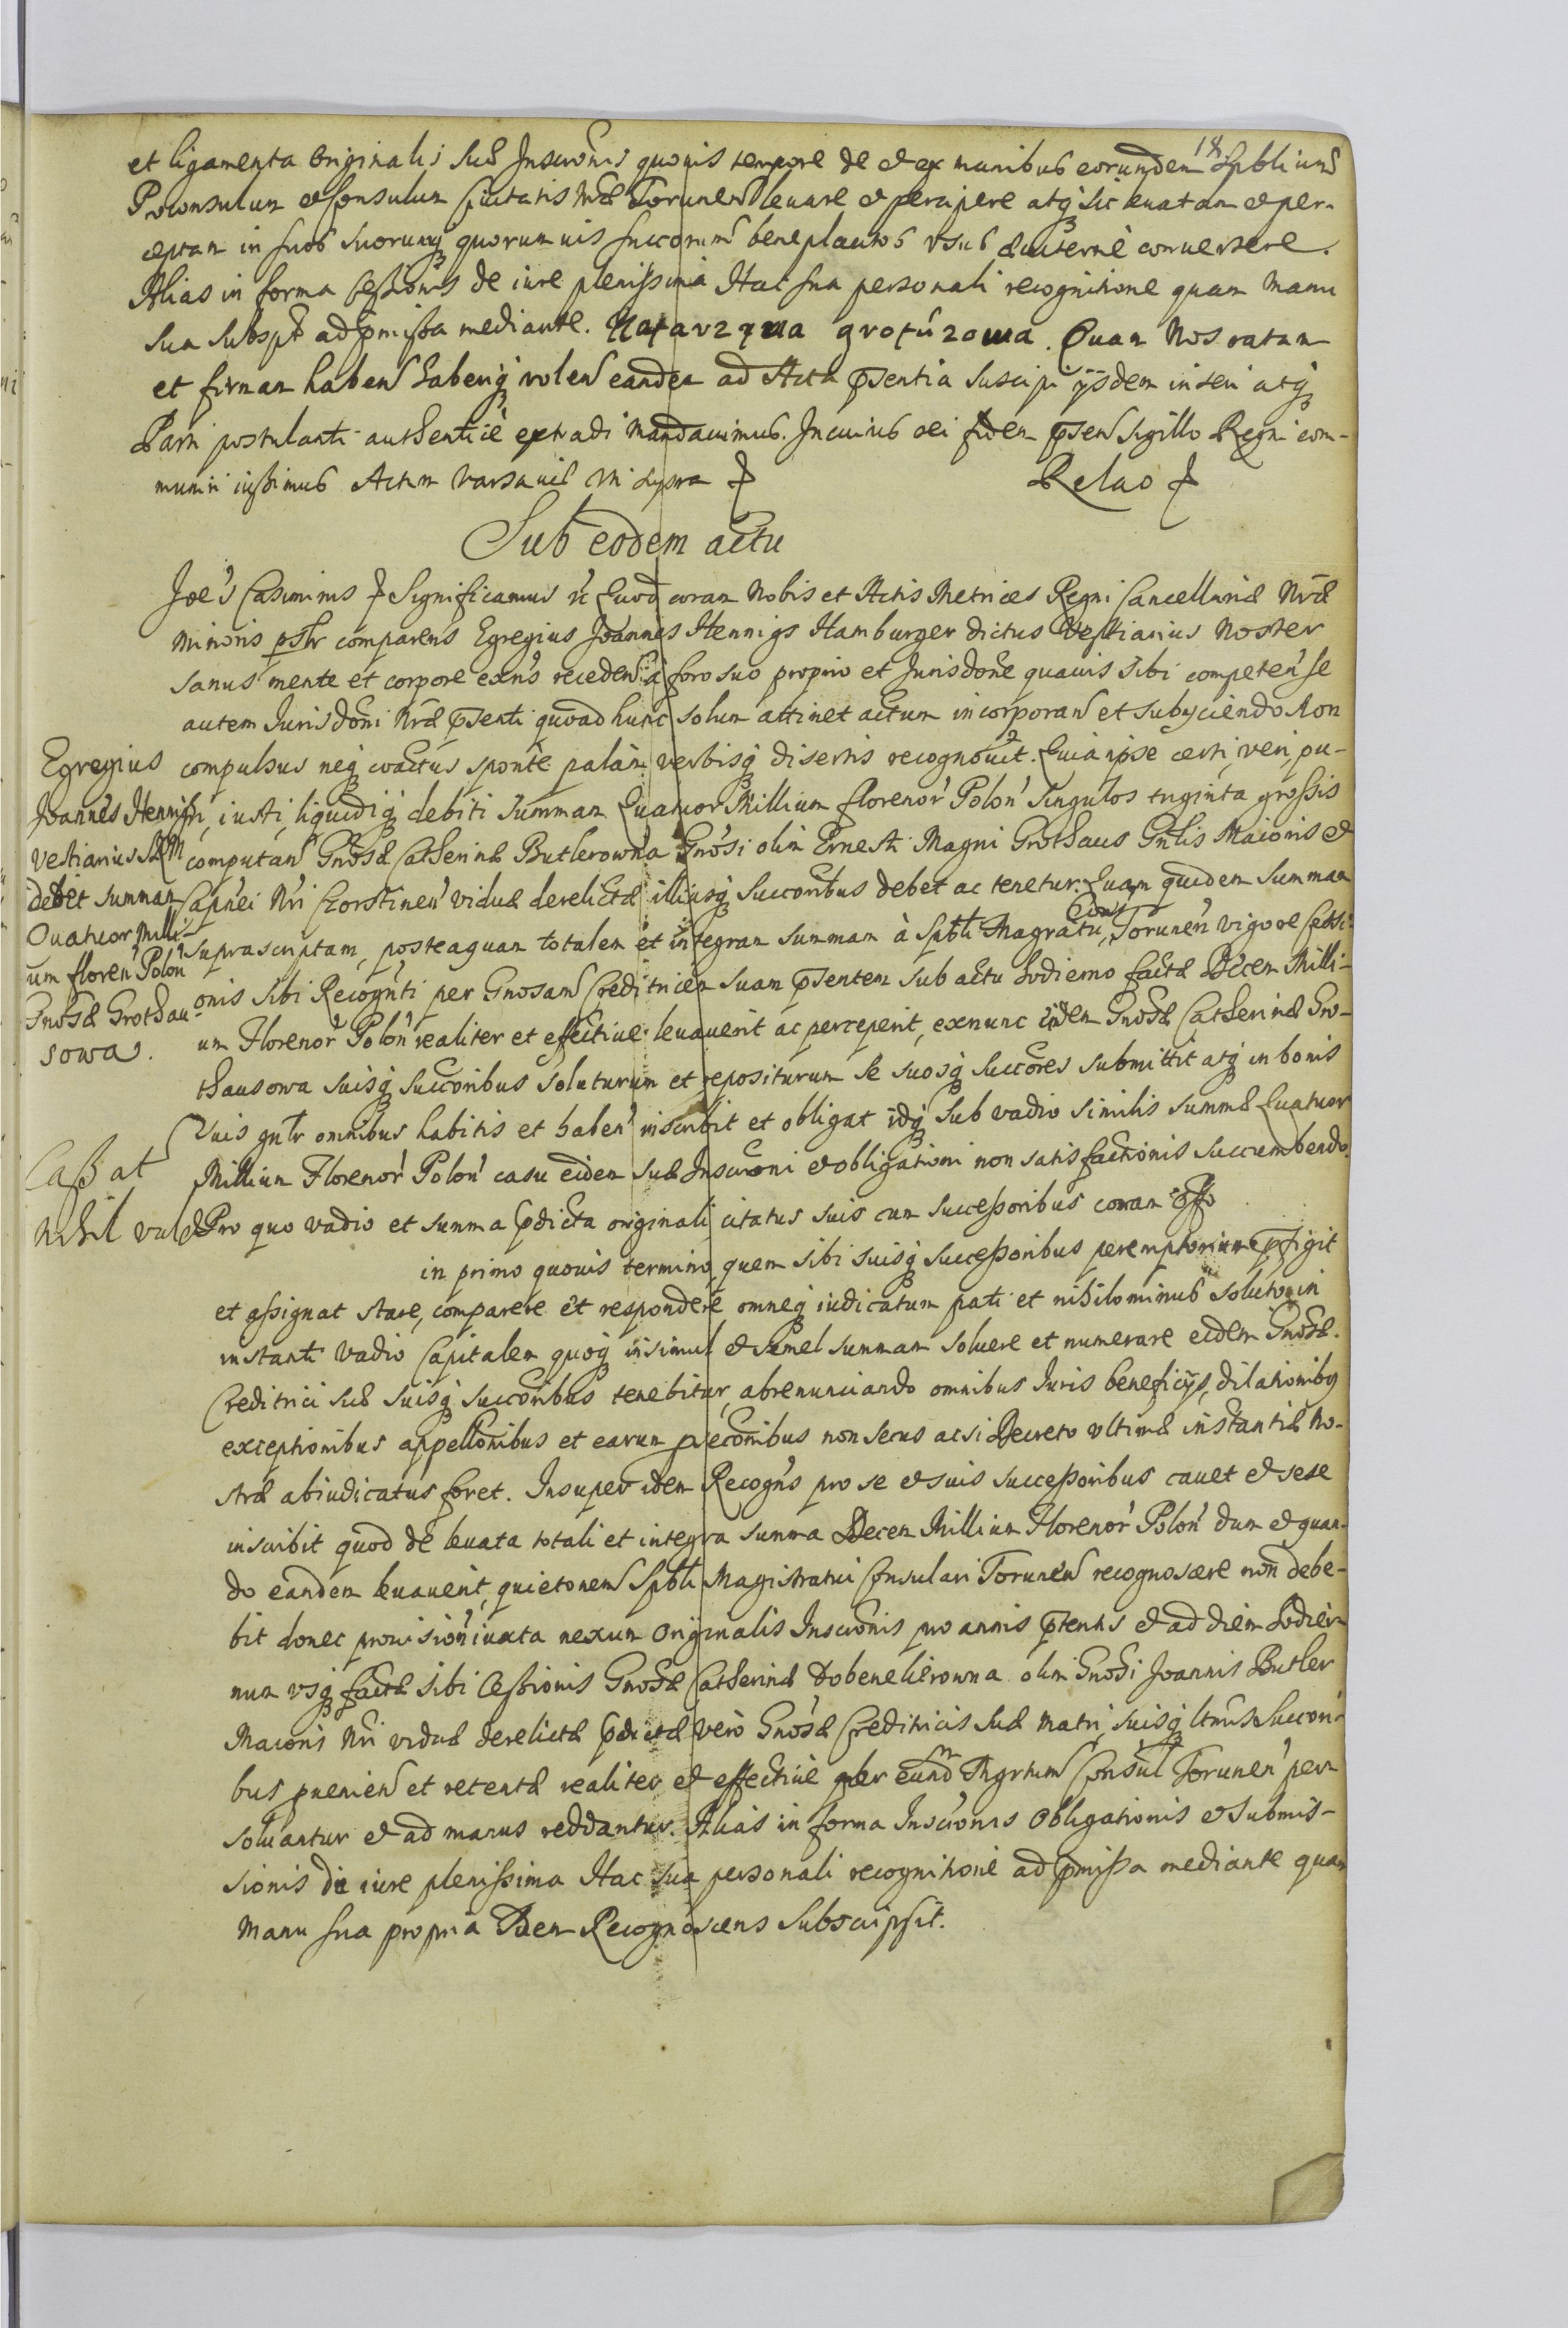 18
et ligamenta Originalis suæ Inscrõnis quovis tempore de et ex manibus eorundem Spblium
Proconsulum et Consulum Civitatis Nræ Torunen̄ levare et percipere atq̨ sic levatam et per-
ceptam in suos suorumq̨ quorumvis succorum̄ beneplacitos usus convertere.
Alias in forma Cessionis de iure plenissima Hac sua personali recognitione quam manu
sua subspt ad p̄missa mediante. Katarzyna grotuzowa. Quam Nos ratam
et firmam haben̄ haberiq̨ volen̄ eandem ad Acta p̄sentia suscipi ijsdem inseri atq̨
Parti postulanti authenticè extradi mandavimus. In cuius rei fidem p̄sen̄ Sigillo Regni com-
muniri iussimus Actum Varsaviæ ut supra ⁊ Relao ⁊
Sub eodem actu
Joe's Casimirus ⁊ Significamus &c Quod coram Nobis et Actis Metrices Regni Cancellariæ Nræ
Minoris psltr comparens Egregius Joannes Hennigs Hamburger dictus Vestiarius Noster
sanus mente et corpore exñs receden̄ à foro suo proprio et Jurisdone quavis sibi competen̄ se
autem Jurisdoni Nræ p̄senti quoad hunc solum attinet actum incorporan̄ et subijciendo Non
compulsus neq̨ coactus sponte palàm verbisq̨ disertis recognovit. Quia ipse certi, veri, pu-
ri, iusti, liquidiq̨ debiti summam Quatuor Millium florenor' Polon' Singulos triginta grossis
computan̄ Gnosæ Catherinæ Butlerowna Gnosi olim Ernesti Magni Grothaus Gnlis Maioris et
Capnei Nri Czorstinen' viduæ derelictæ illiusq̨ Succoribus debet ac tenetur. Quam quidem summam
suprascriptam, posteaquam totalem et integram summam à Spbli Magratu, Civit Torunen' vigore Cessi-
onis sibi Recognti per Gnosam Creditricem suam p̄sentem sub actu hodierno factæ Decem Milli-
um Florenor' Polon' realiter et effectivè levaverit ac perceperit, exnunc eidem Gnosæ Catherinæ Gro-
thausowa suisq̨ succoribus soluturum et repositurum se suosq̨ succores submittit atq̨ in bonis
suis gnltr omnibus habitis et haben' inscribit et obligat idq̨ sub vadio similis summæ Quatuor
Millium Florenor' Polon' casu eidem suæ Inscrõni et obligationi non satisfactionis succumbendo.
Pro quo vadio et summa p̄dicta originali citatus suis cum successoribus coram offo
in primo quovis termino, quem sibi suisq̨ successoribus peremptorium p̄figit
et assignat stare, comparere et respondere omneq̨ iudicatum pati et nihilominus soluto in
instanti vadio Capitalem quoq̨ insimul et semel summam soluere et numerare eidem Gnosæ
Creditrici suæ suisq̨ succoribus tenebitur, abrenunciando omnibus Iuris beneficijs, dilationibus
exceptionibus appellonibus et earum p̄seconibus non secus ac si Decreto ultimæ instantiæ No-
stræ abiudicatus foret. Insuper idem Recogn's pro se et suis successoribus cavet et sese
inscribit quod de levata totali et integra summa Decem Millium Florenor' Polon' dum et quan-
do eandem levaverit, quietonem Spbli Magistratui Consulari Torunen̄ recognoscere non debe-
bit donec provision' iuxta nexum Originalis Inscrõnis pro annis p̄teritis et ad diem hodier-
num usq̨ factæ sibi Cessionis Gnosæ Catherinæ Dobenelierowna olim Gnosi Joannis Butler
Maioris Nri viduæ derelictæ p̄dictæ verò Gnosæ Creditricis suæ matri, suisq̨ ltmis succori-
bus prenien̄ et retentæ realiter et effectivè per eund Mgrtum Consul Torunen' per-
soluantur et ad manus reddantur. Alias in forma Inscrõnis Obligationis et submis-
sionis de iure plenissima Hac sua personali recognitione ad p̄missa mediante quam
manu sua propria Idem Recognoscens subscripsit.
Egregius
Joannes Hennigs
Vestiarius SRM
debet summam
Quatuor Milli-
um floren' Polon'
Gnosæ Grothau-
sowa.
Cassat
Nihil valet